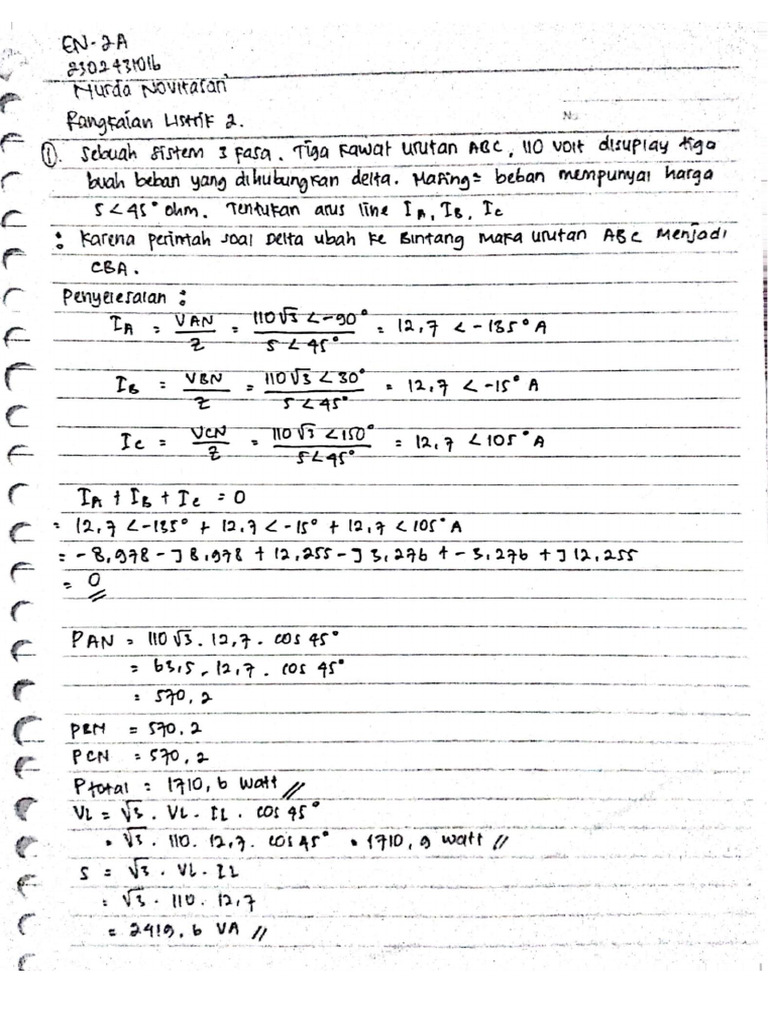 EN-2A
2302431016
Nurda Novitasari
Rangkaian Listrik 2.
No
①. Sebuah sistem 3 fasa. Tiga kawat urutan ABC, 110 volt disuplay tiga
buah beban yang dihubungkan delta. Masing= beban mempunyai harga
5<45° ohm. Tentukan arus line IA, IB, IC
: Karena perintah soal Delta ubah ke Bintang maka urutan ABC menjadi
CBA.
Penyelesaian :
IA = VAN/Z = 110√3 <-90°/5<45° = 12,7 <-135° A
IB = VBN/Z = 110√3 <30°/5<45° = 12,7 <-15° A
Ic = VCN/Z = 110√3 <150°/5<45° = 12,7 <105° A
IA + IB + Ic = 0
= 12,7 <-135° + 12,7 <-15° + 12,7 <105° A
= -8,978 - J 8,978 + 12,255 - J 3,276 + -3,276 + J 12,255
= 0
PAN = 110√3 . 12,7 . cos 45°
= 63,5 . 12,7 . cos 45°
= 570,2
PBN = 570,2
PCN = 570,2
Ptotal = 1710,6 watt //
VL = √3 . VL . IL . cos 45°
= √3 . 110 . 12,7 . cos 45° = 1710,9 watt //
S = √3 . VL . IL
= √3 . 110 . 12,7
= 2419,6 VA //